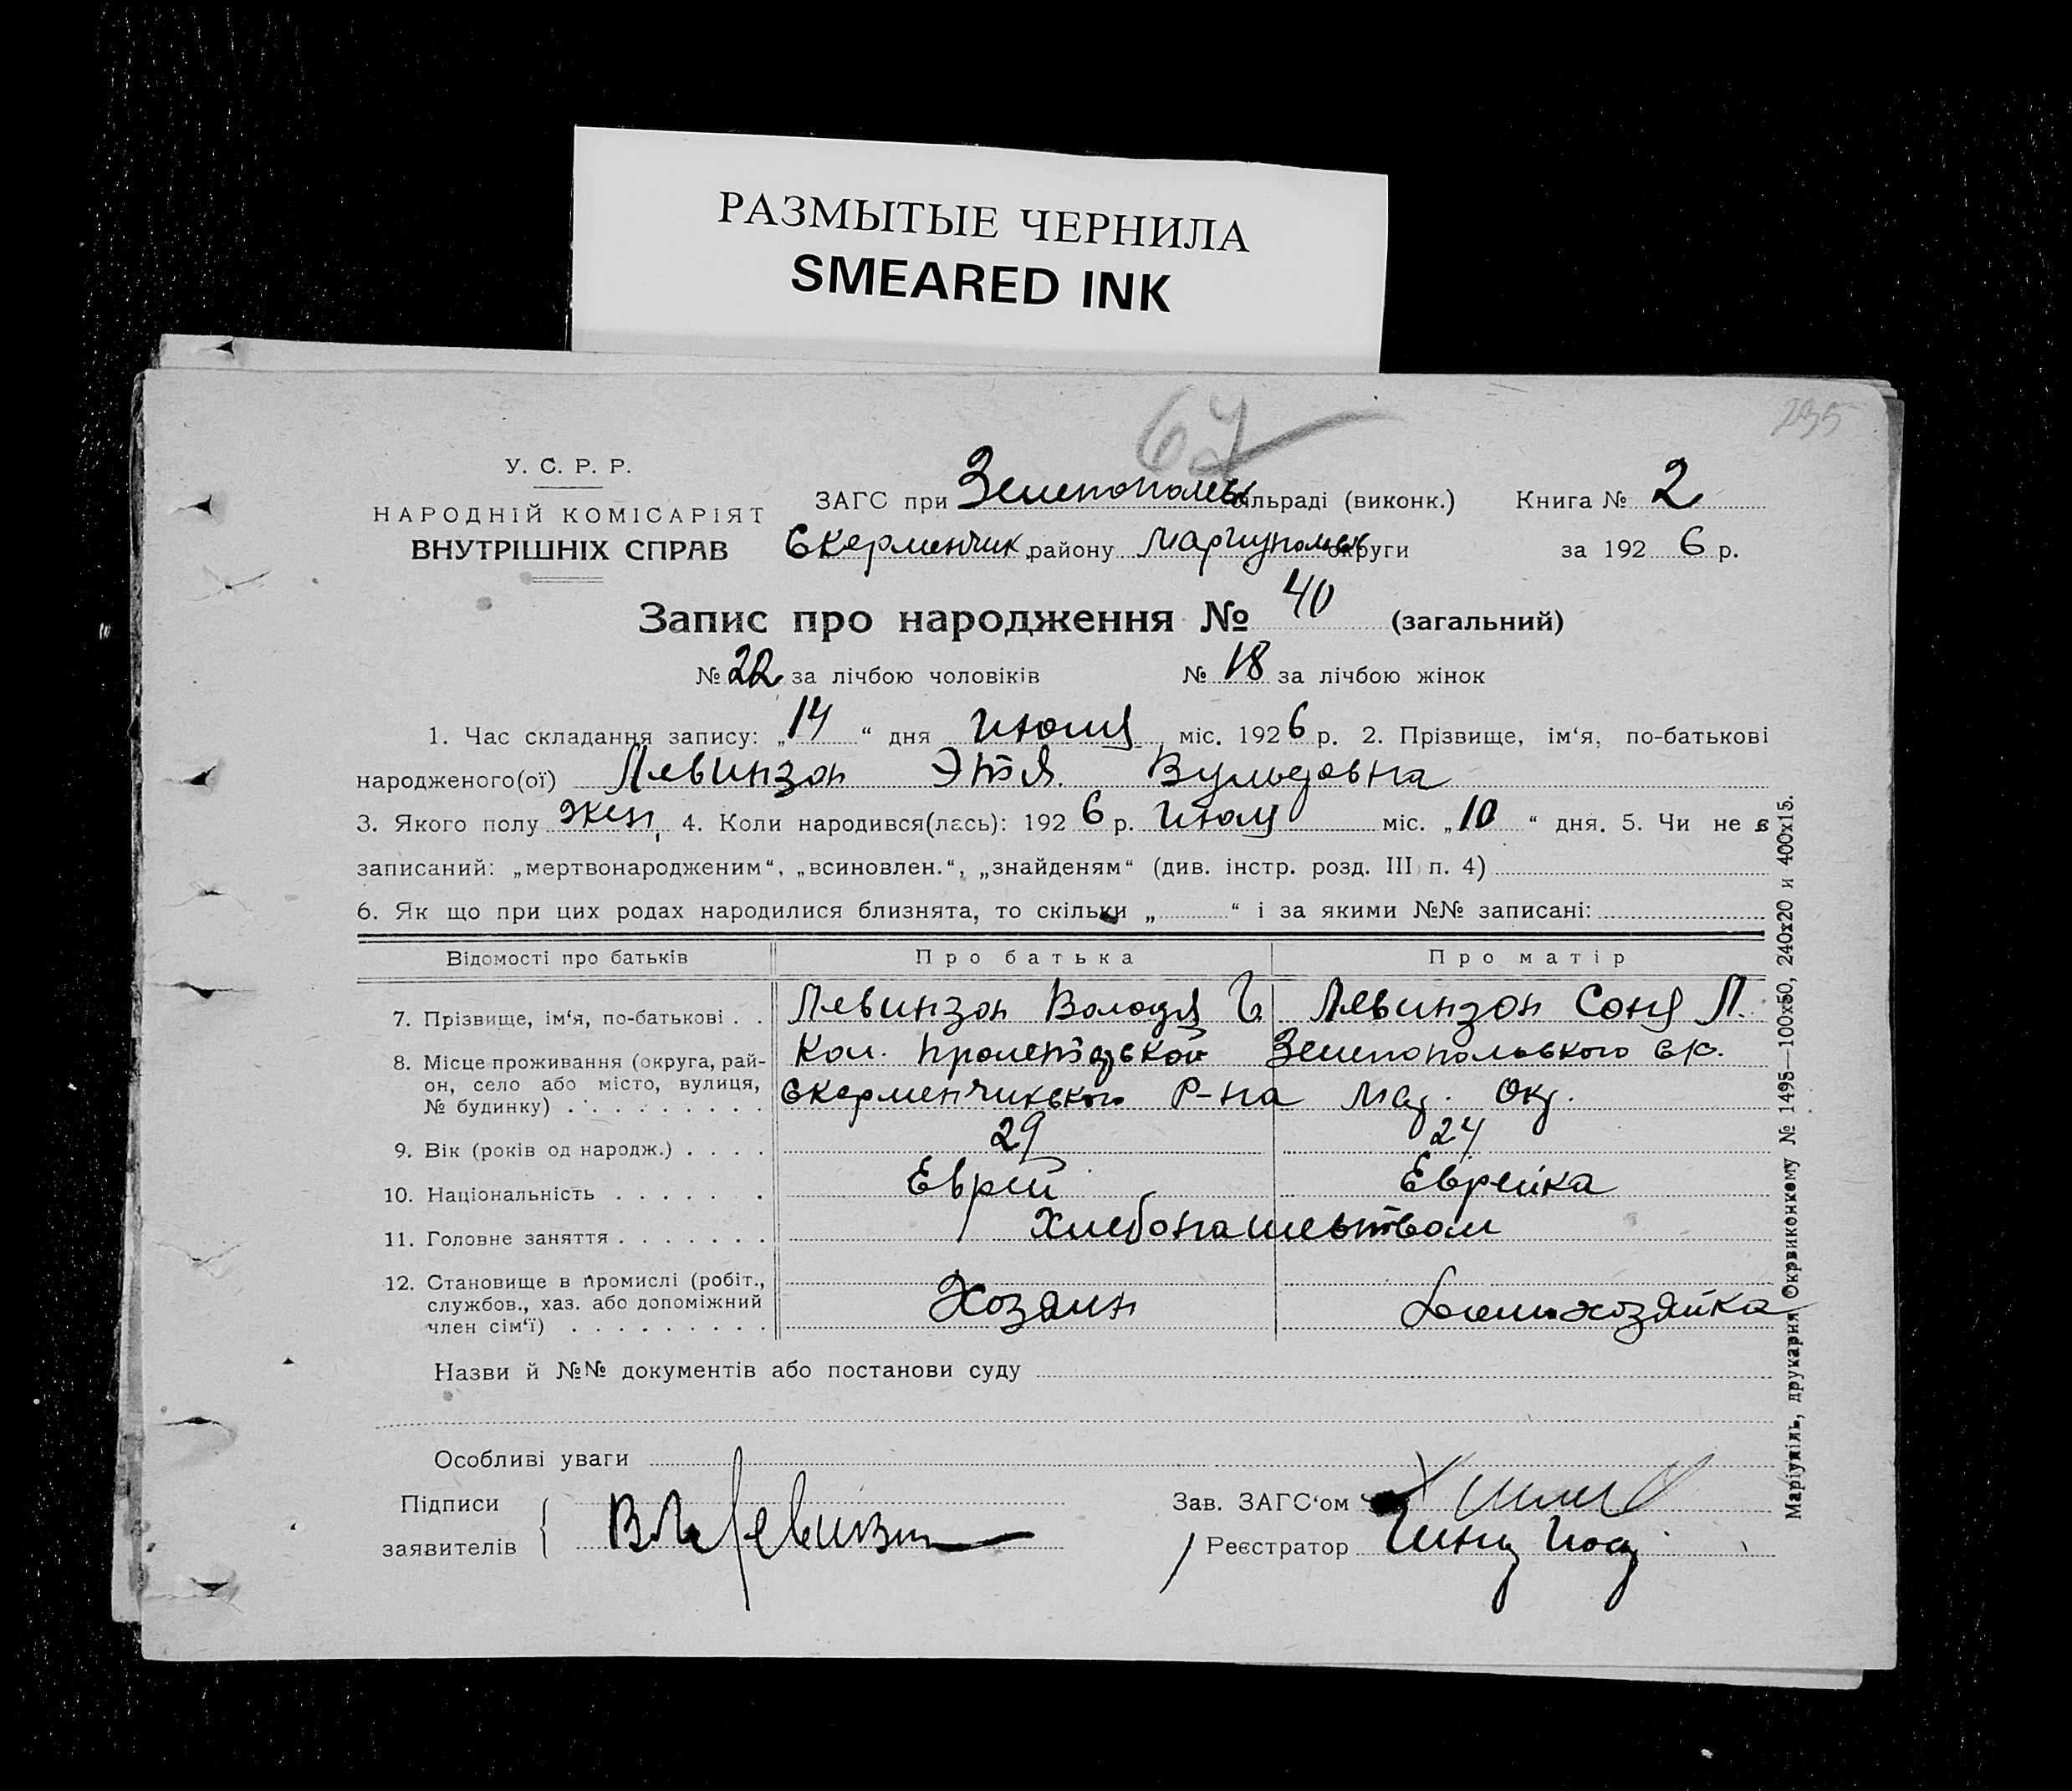 РАЗМЫТЫЕ ЧЕРНИЛА
SMEARED INK
67
235
У. С. Р. Р.
НАРОДНІЙ КОМІСАРІЯТ
ВНУТРІШНІХ СПРАВ
ЗАГС при Зеленопольс сільраді (виконк.) Книга № 2
Екерменчик району Мариупольс округи за 1926 р.
Запис про народження № 40 (загальний)
№ 22 за лічбою чоловіків № 18 за лічбою жінок
1. Час складання запису: „14“ дня Июля міс. 1926 р. 2. Прізвище, ім'я, по-батькові
народженого(ої) Левинзон Этя Вульфовна
3. Якого полу жен. 4. Коли народився(лась): 1926 р. Июля міс. „10“ дня. 5. Чи не є
записаний: „мертвонародженим“, „всиновлен.“, „знайденям“ (див. інстр. розд. III п. 4)
6. Як що при цих родах народилися близнята, то скільки „ “ і за якими №№ записані:
Відомості про батьків Про батька Про матір
7. Прізвище, ім'я, по-батькові . . Левинзон Володя Левинзон Соня Л.
8. Місце проживання (округа, рай-
он, село або місто, вулиця,
№ будинку) . . . . . . . . .
Кол. Зеленопольского с/с.
Екерменчикского Р-на Мар. Окр.
9. Вік (років од народж.) . . . . 29 24
10. Національність . . . . . . . Еврей Еврейка
11. Головне заняття . . . . . . . Хлебопашеством
12. Становище в промислі (робіт.,
службов., хаз. або допоміжний
член сім'ї) . . . . . . . . .
Хозяин Домохозяйка
Назви й №№ документів або постанови суду
Особливі уваги
Підписи
заявителів
В. Левинзон
Зав. ЗАГС'ом
Реєстратор
Маріупіль, друкарня Окрвиконкому № 1495—100х50, 240х20 и 400х15.